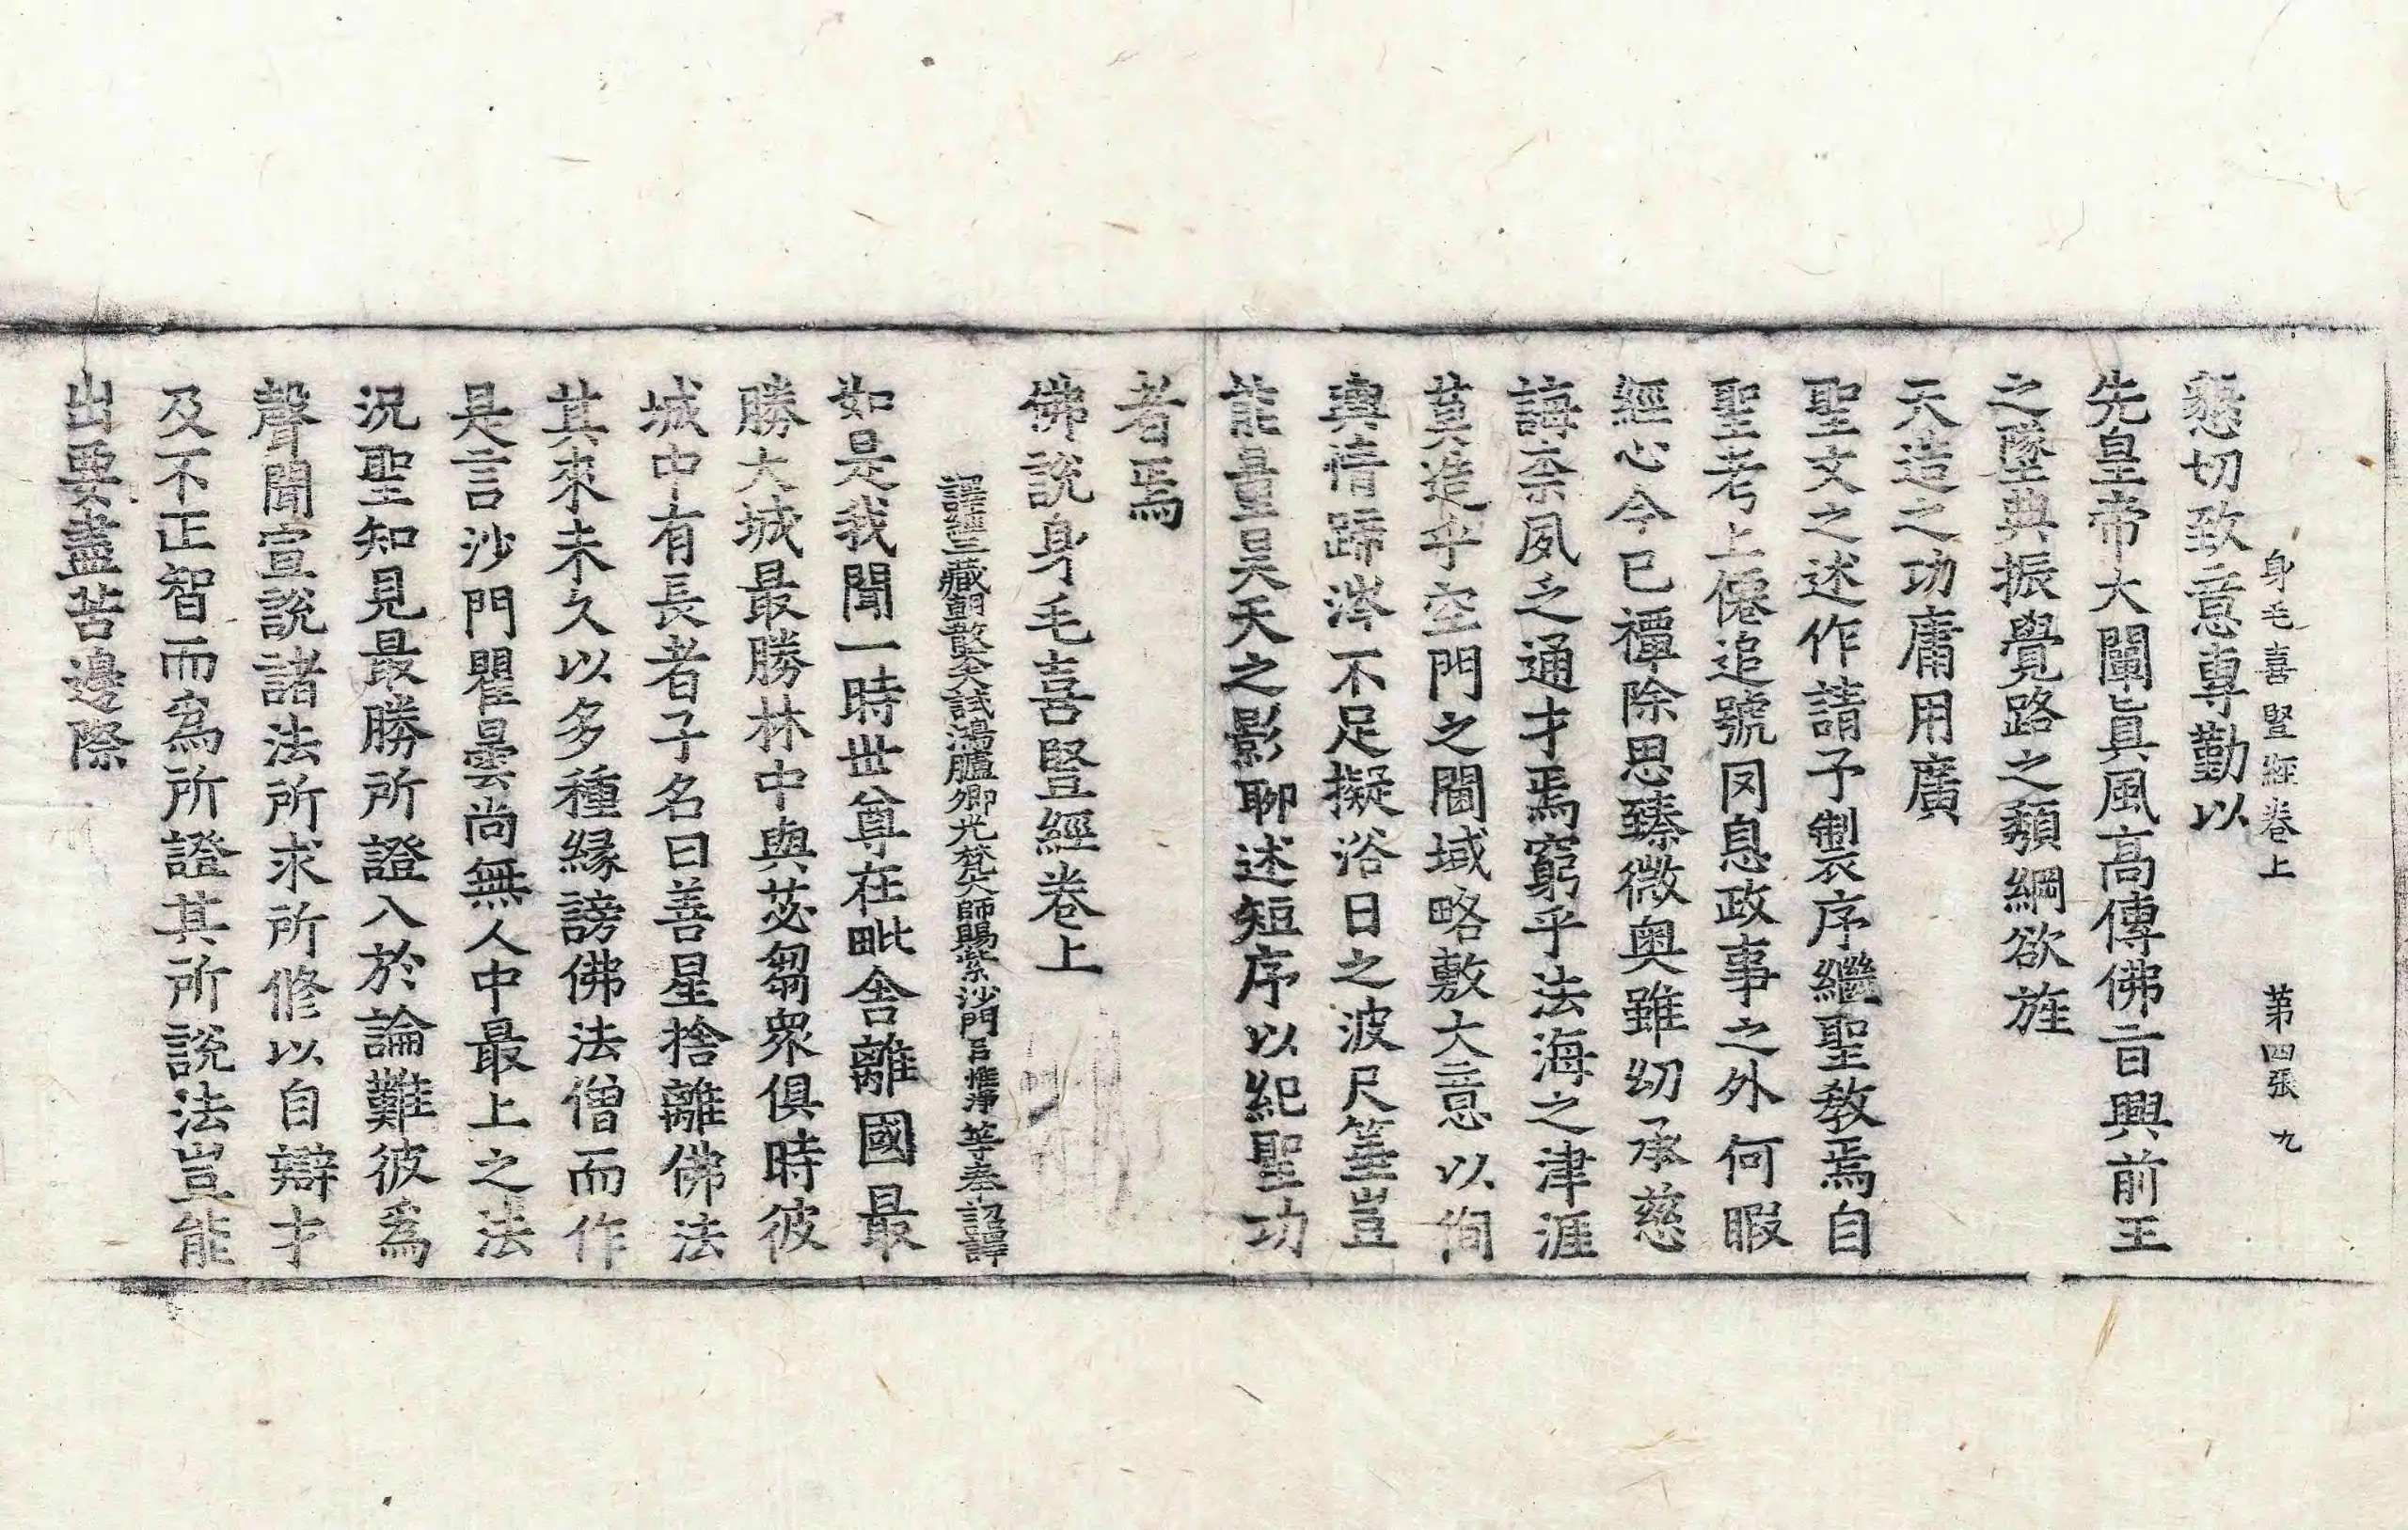 身毛喜豎經卷上 第四張 九
懇切致意專勤以
先皇帝大闡真風高傳佛旨興前王
之墜典振覺路之頹綱欲旌
天造之功庸用廣
聖文之述作請予製序繼聖教焉自
聖考上僊追號罔息政事之外何暇
經心今已禫除思臻微奧雖幼承慈
誨柰夙乏通才焉窮乎法海之津涯
莫造乎空門之閫域略敷大意以徇
輿情蹄涔不足擬浴日之波尺箠豈
能量昊天之影聊述短序以紀聖功
者焉
佛說身毛喜豎經卷上
譯經三藏朝散大夫試鴻臚卿光梵大師賜紫沙門臣惟淨等奉詔譯
如是我聞一時世尊在毗舍離國最
勝大城最勝林中與苾芻衆俱時彼
城中有長者子名曰善星捨離佛法
其來未久以多種緣謗佛法僧而作
是言沙門瞿曇尚無人中最上之法
況聖知見最勝所證入於論難彼爲
聲聞宣說諸法所求所修以自辯才
及不正智而爲所證其所說法豈能
出要盡苦邊際